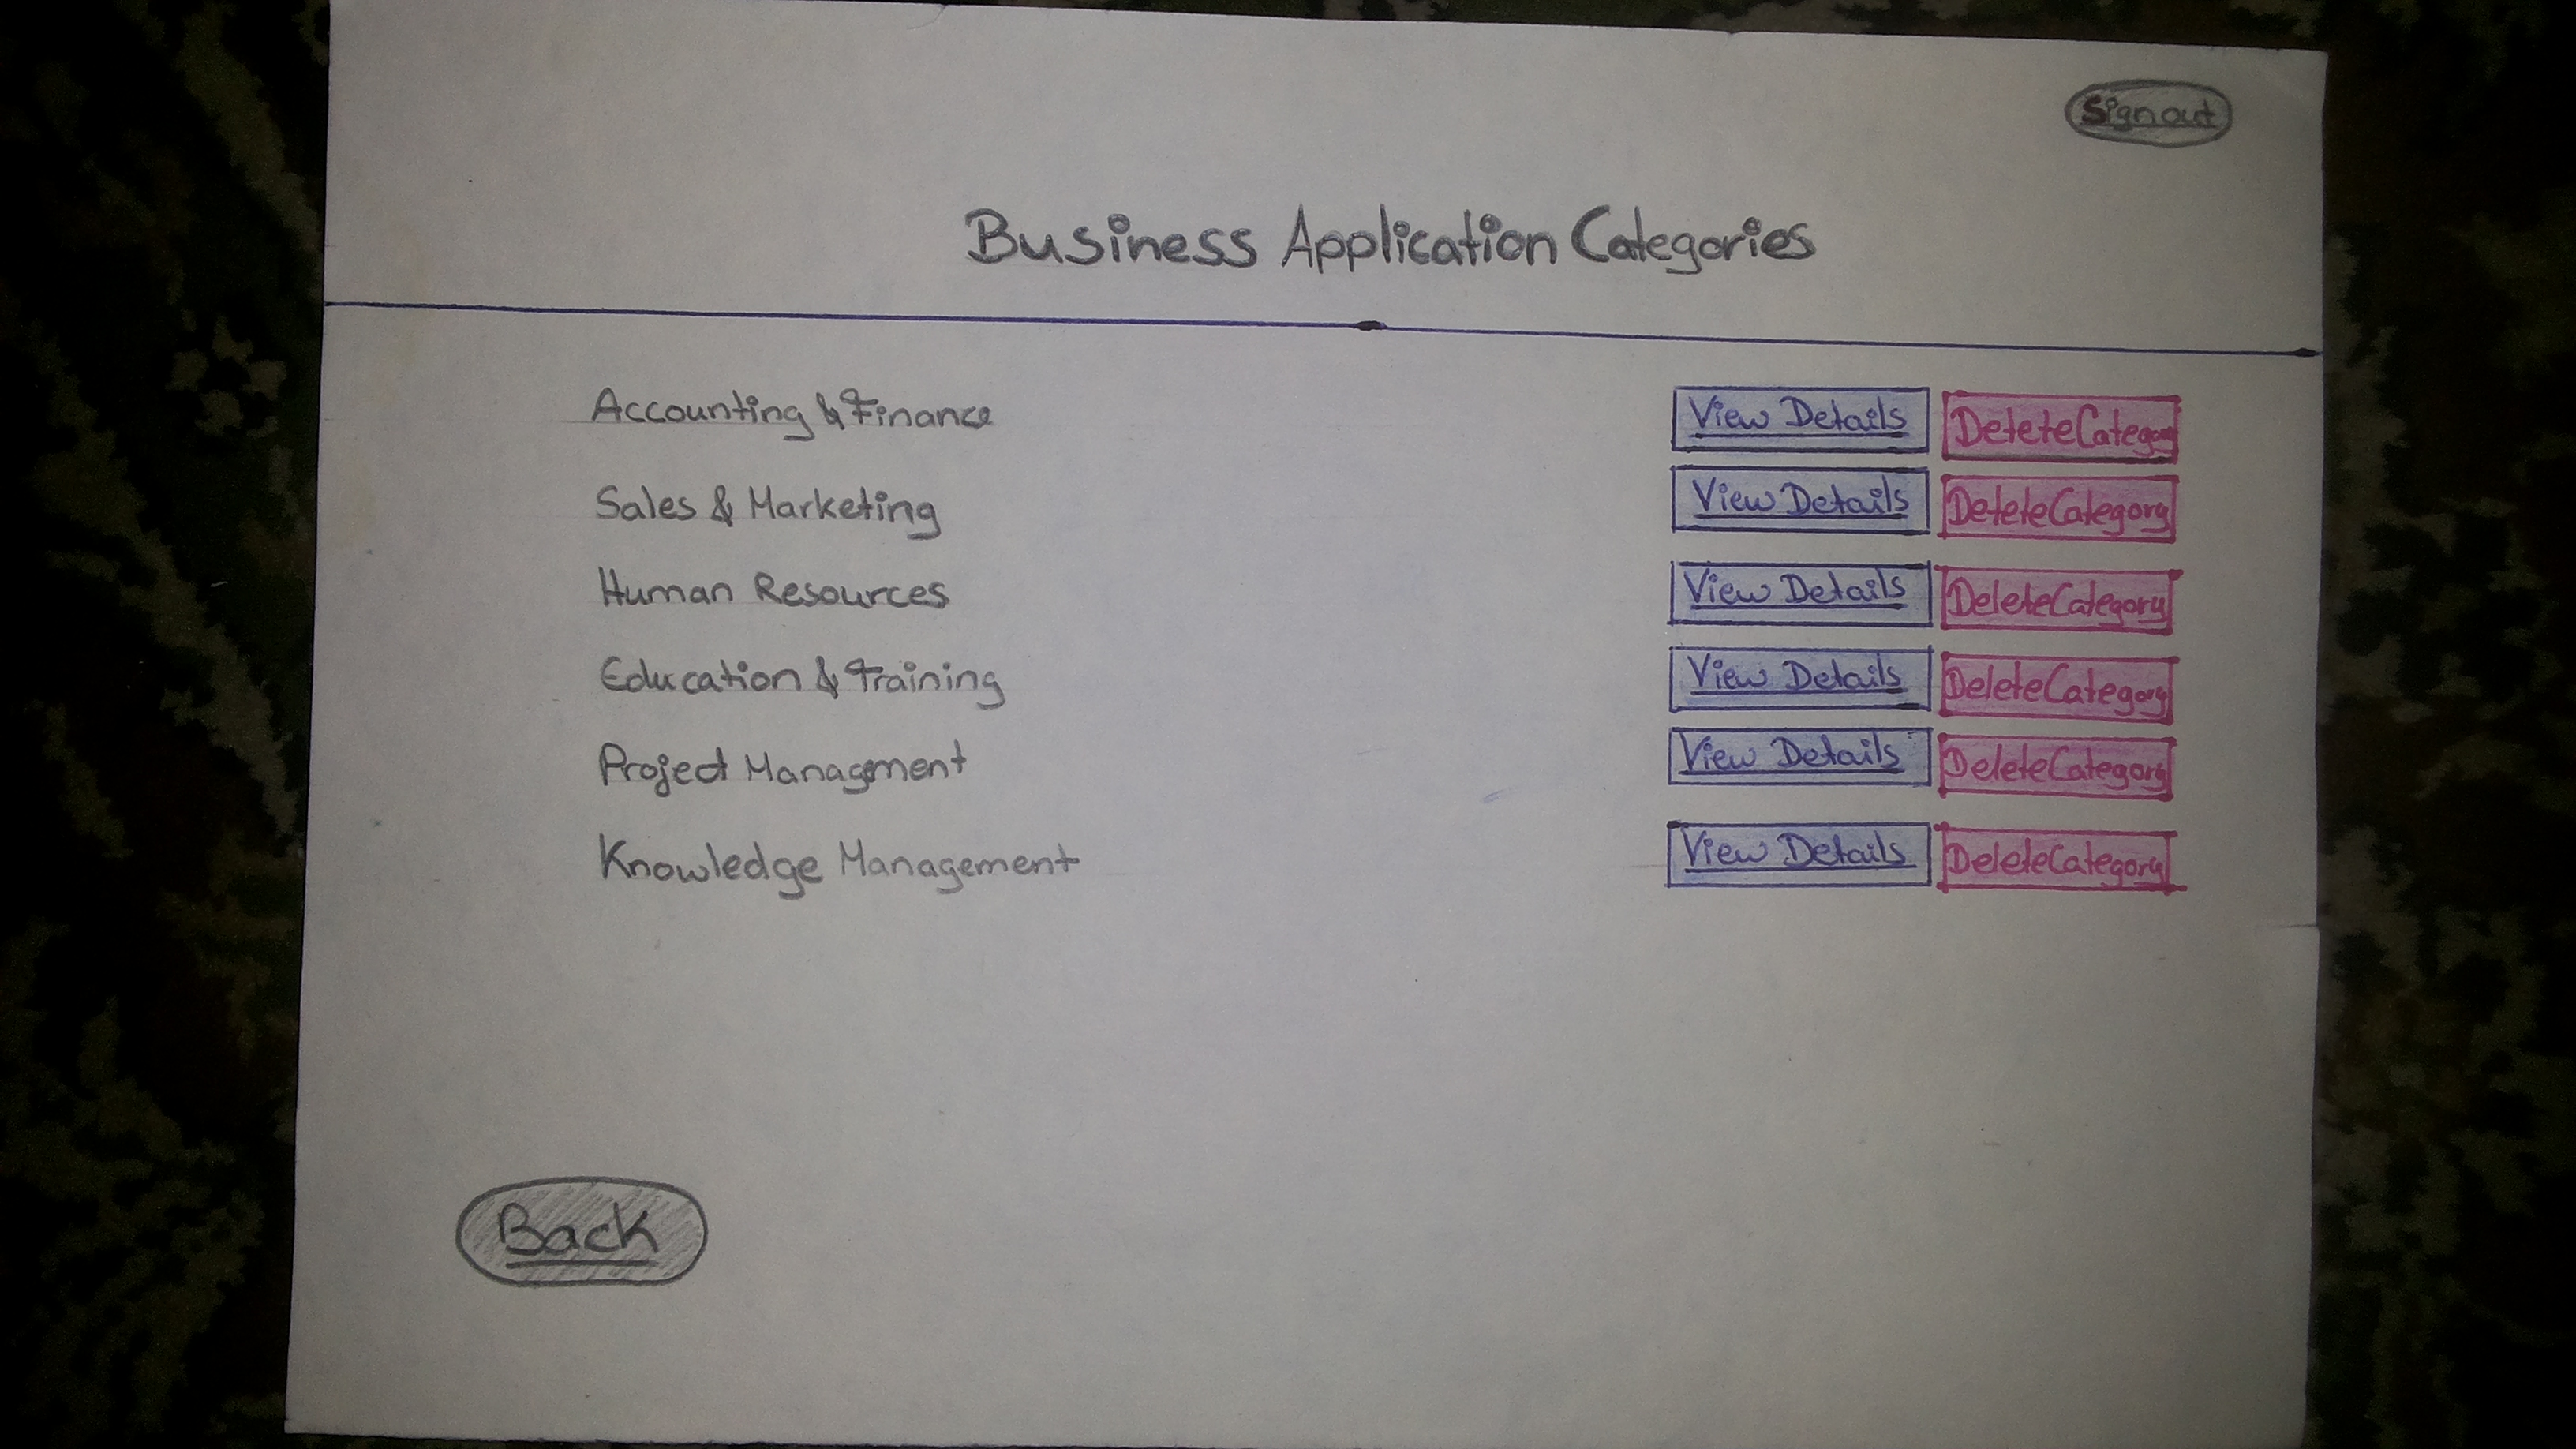 Sign out
Business Application Categories
Accounting & Finance View Details Delete Category
Sales & Marketing View Details Delete Category
Human Resources View Details Delete Category
Education & Training View Details Delete Category
Project Managment View Details Delete Category
Knowledge Management View Details Delete Category
Back